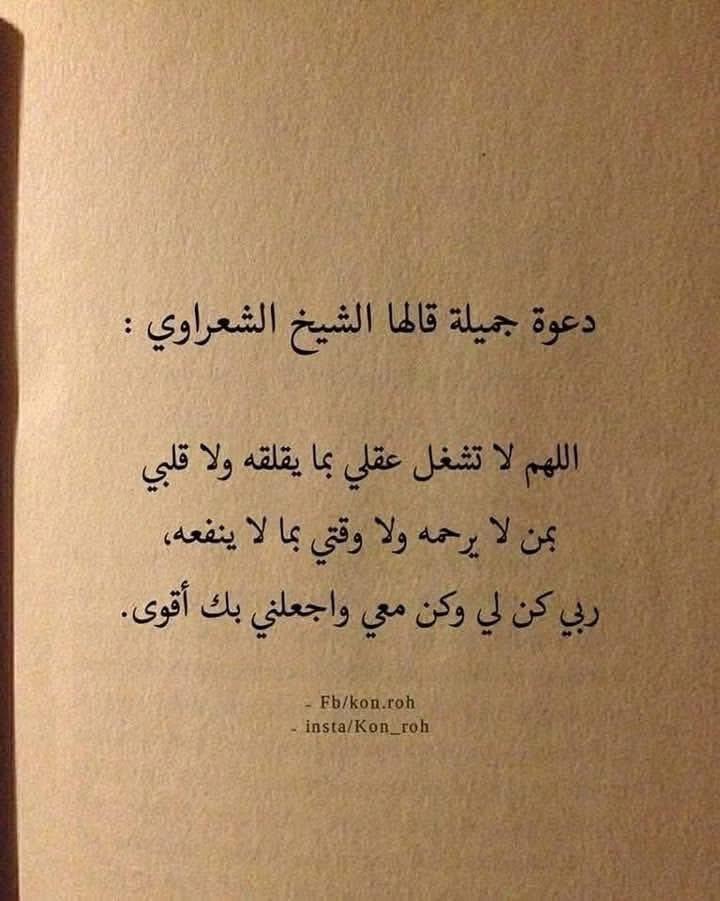 دعوة جميلة قالها الشيخ الشعراوي :
اللهم لا تشغل عقلي بما يقلقه ولا قلبي
بمن لا يرحمه ولا وقتي بما لا ينفعه،
ربي كن لي وكن معي واجعلني بك أقوى.
- Fb/kon.roh
- insta/Kon_roh